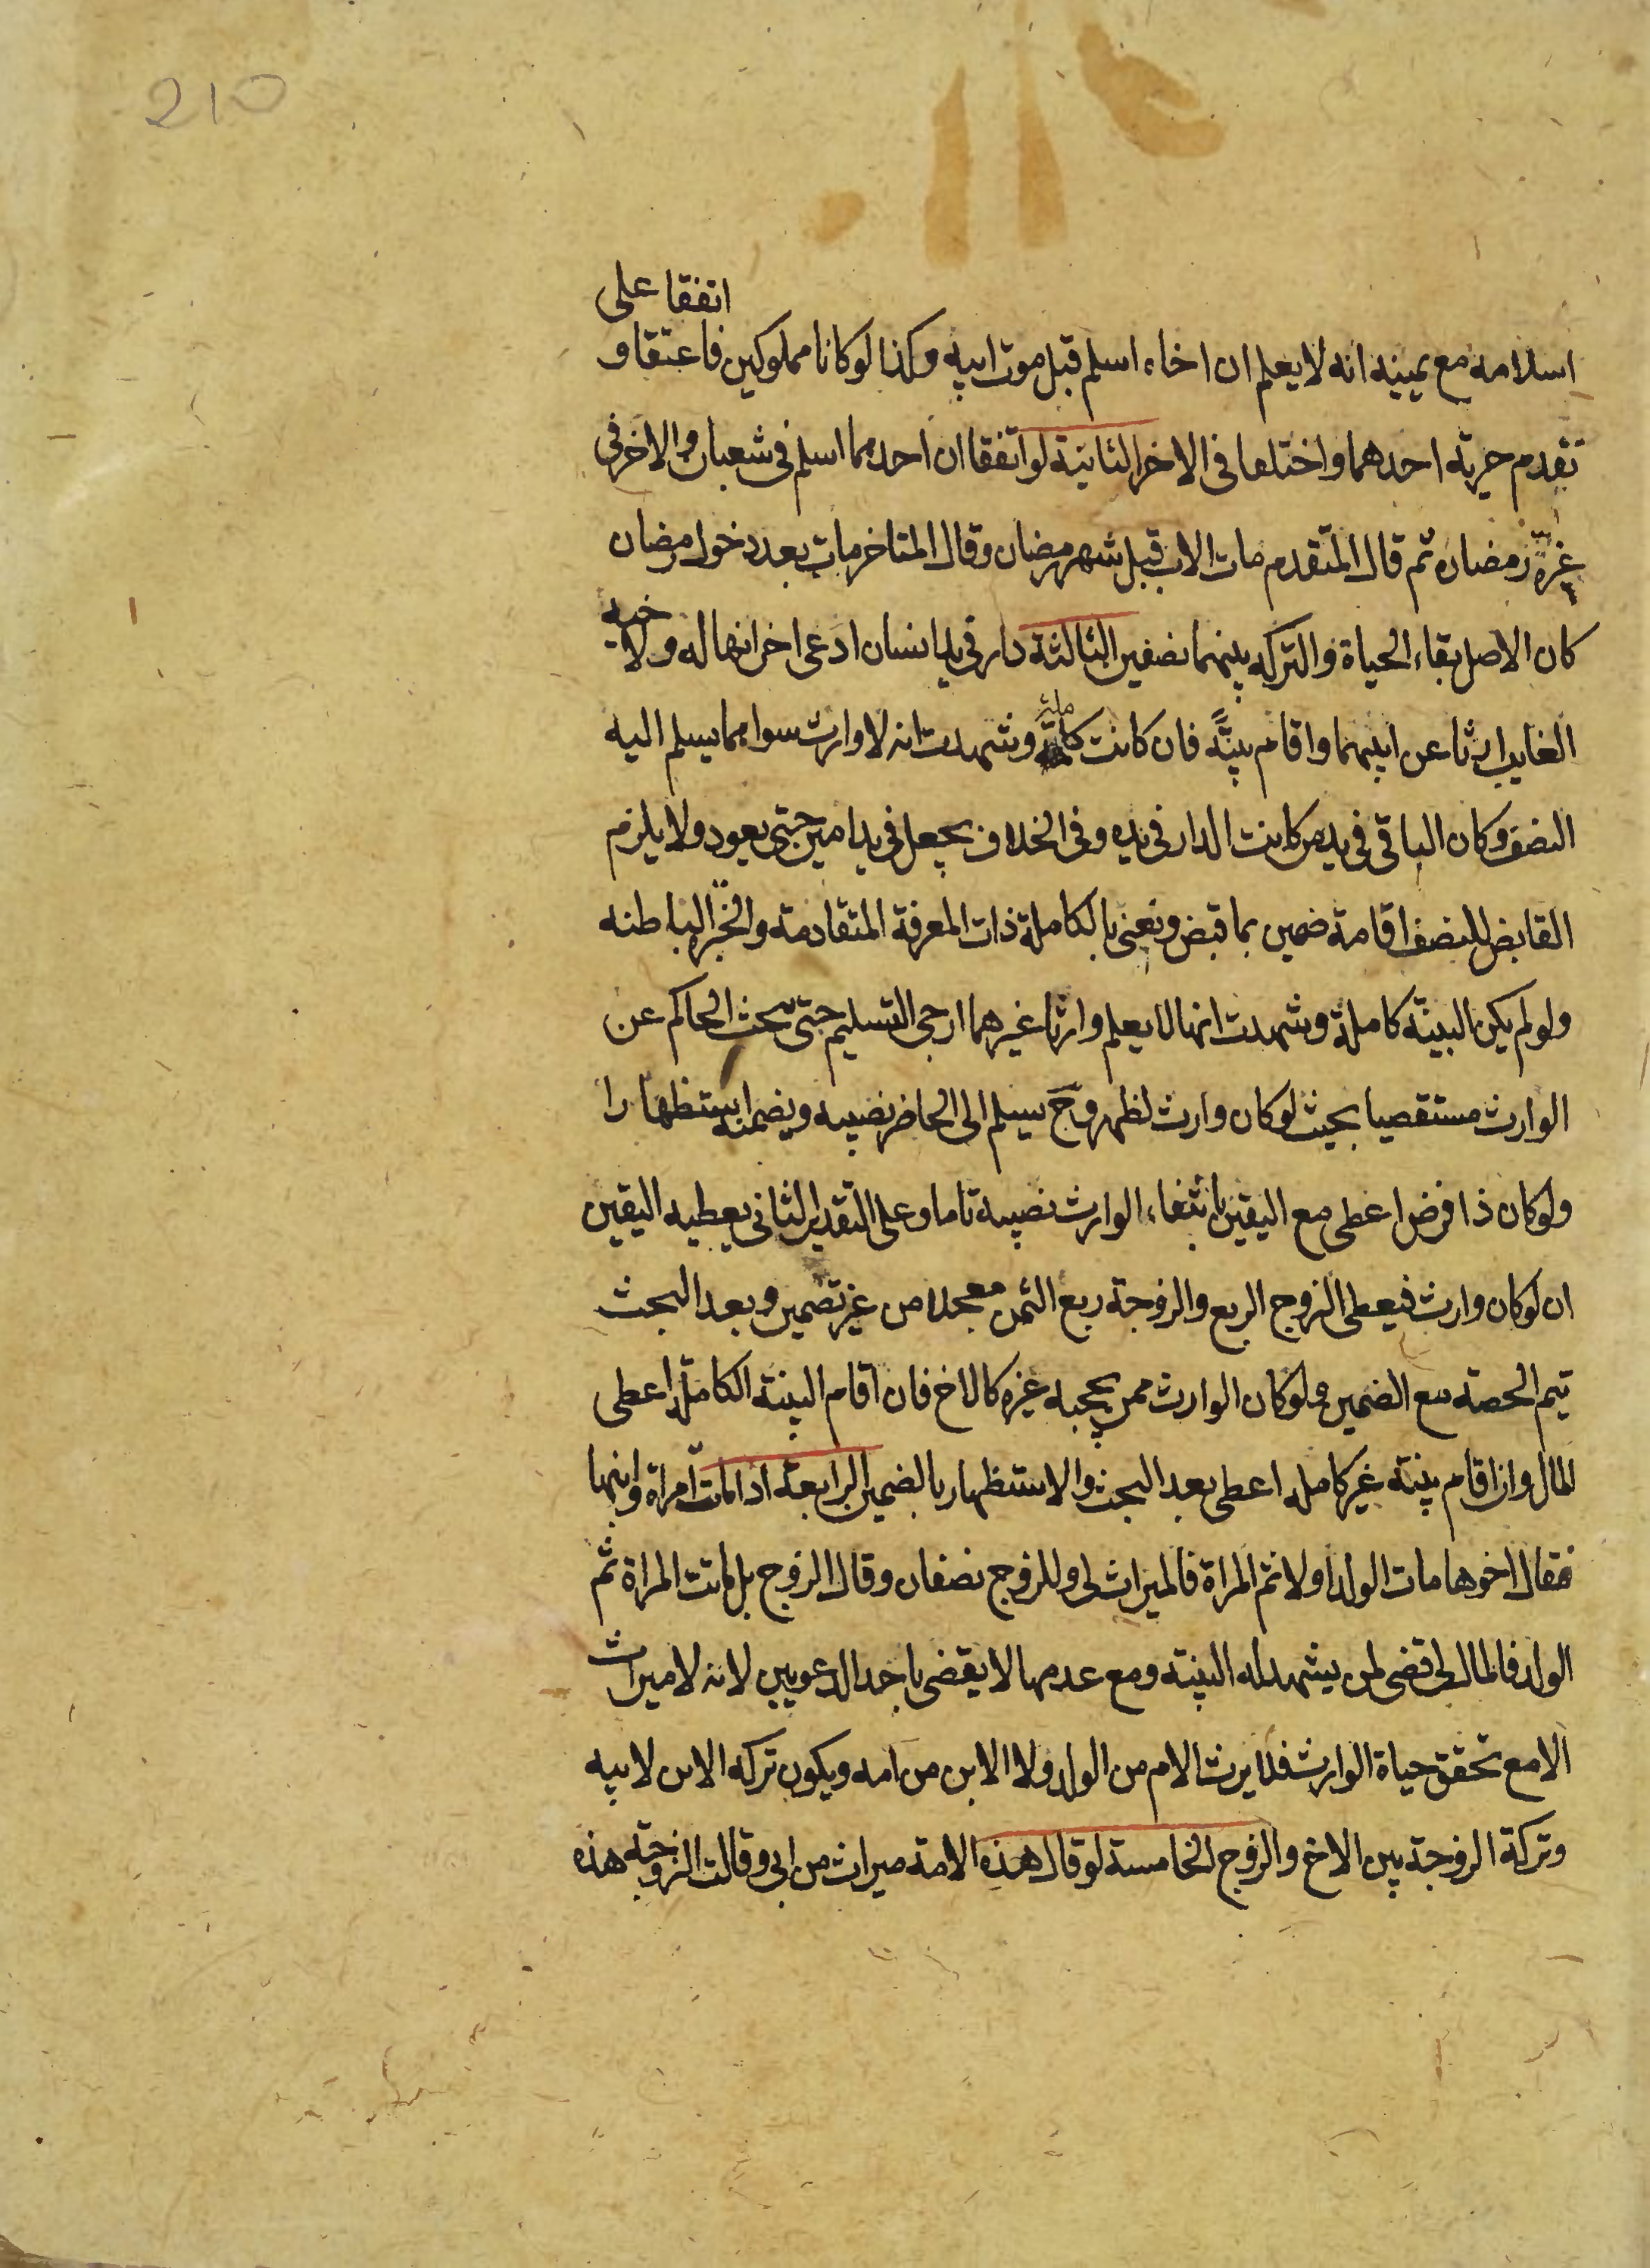 210
اتفقا على
اسلامه مع يمينه انه لا يعلم ان اخاه اسلم قبل موت ابيه وكذا لو كانا مملوكين فاعتقا و
تقدم حرية احدهما واختلفا فى الاخر الثانية لو اتفقا ان احدهما اسلم فى شعبان والاخر فى
غرة رمضان ثم قال المتقدم مات الاب قبل شهر رمضان وقال المتاخر مات بعد دخول رمضان
كان الاصل بقاء الحياة والتركه بينهما نصفين الثالثة دار فى يد انسان ادعى اخر انها له ولاخيه
الغايب ارثا عن ابيهما واقام بينة فان كانت كاملة وشهدت انه لا وارث سواهما يسلم اليه
النصف وكان الباقى فى يد من كانت الدار فى يده وفى الخلاف يجعل فى يد امين حتى يعود ولا يلزم
القابض للنصف اقامة ضمين بما قبض ونعنى بالكاملة ذات المعرفة المتقادمة والخبرة الباطنه
ولو لم يكن البينة كاملة وشهدت انها لا يعلم وارثا غيرهما ارجى التسليم حتى يبحث الحاكم عن
الوارث مستقصيا بحيث لو كان وارث لظهر وح يسلم الى الحاضر نصيبه ويضمنه استظهارا
ولو كان ذا فرض اعطى مع اليقين بانتفاء الوارث نصيبه تاما وعلى التقدير الثانى يعطيه اليقين
ان لو كان وارث فيعطى الزوج الربع والزوجة ربع الثمن معجلا من غير تضمين وبعد البحث
يتم الحصة مع الضمين ولو كان الوارث ممن يحجبه غيره كالاخ فان اقام البينة الكاملة اعطى
المال وان اقام بينة غير كامله اعطى بعد البحث والاستظهار بالضمين الرابعة اذا ماتت امراة وابنها
فقال اخوها مات الولد اولا ثم المراة فالميراث لى وللزوج نصفان وقال الزوج بل ماتت المراة ثم
الولد فالمال لى قضى لمن يشهد له البينة ومع عدمها لا يقضى باحد الدعويين لانه لا ميراث
الا مع تحقق حياة الوارث فلا يرث الام من الولد ولا الابن من امه ويكون تركه الابن لابيه
وتركة الزوجة بين الاخ والزوج الخامسة لو قال هذه الامة ميراث من ابى وقالت الزوجة هذه